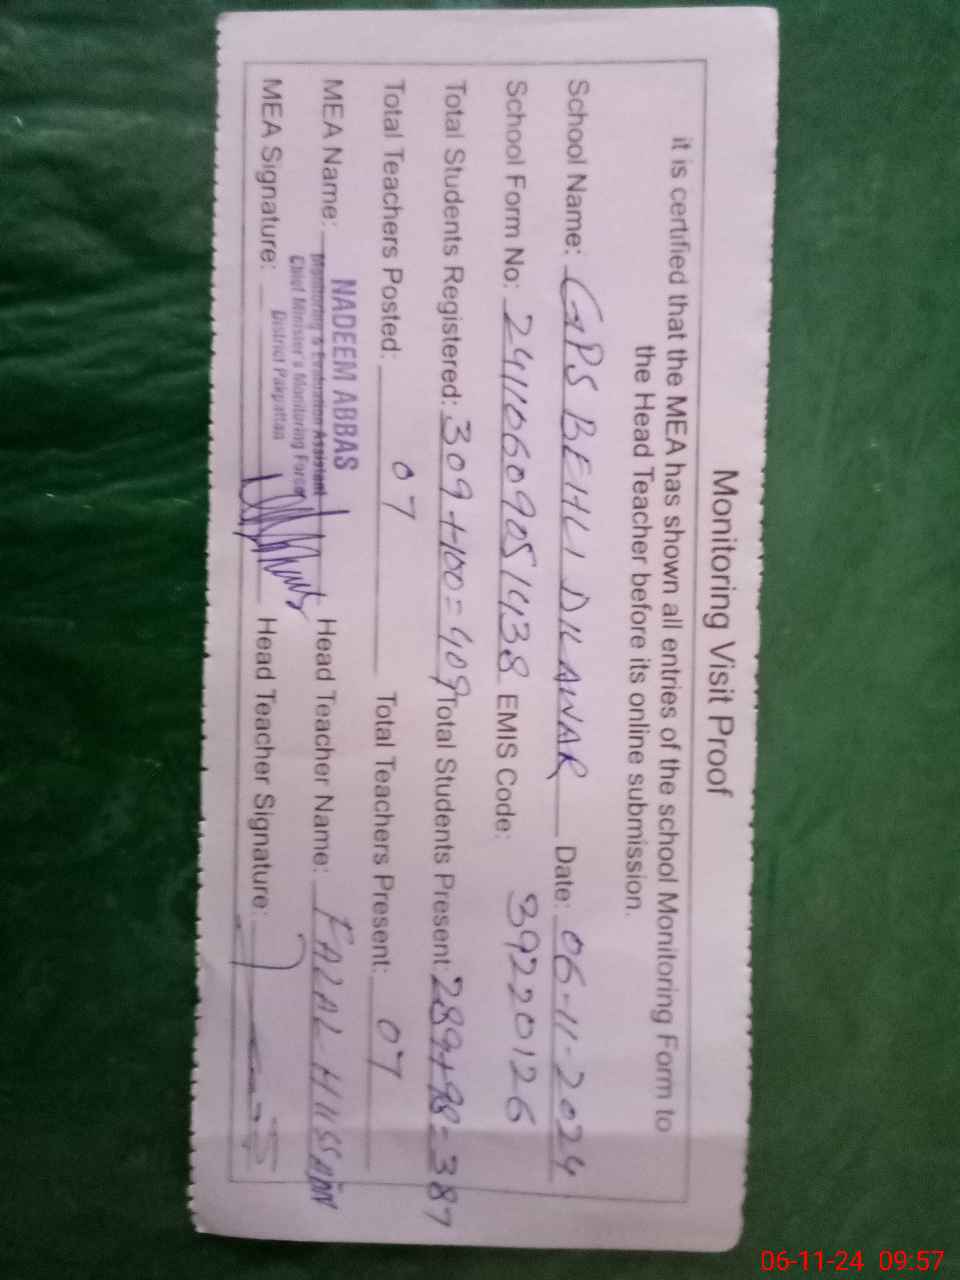 Monitoring Visit Proof
it is certified that the MEA has shown all entries of the school Monitoring Form to
the Head Teacher before its online submission.
School Name: GPS BEHLI DILAWAR Date: 06-11-2024
School Form No: 24110609051438 EMIS Code: 39220126
Total Students Registered: 309+100=409 Total Students Present: 289+98=387
Total Teachers Posted: 07 Total Teachers Present: 07
MEA Name: NADEEM ABBAS Head Teacher Name: FAZAL HUSSAIN
Monitoring & Evaluation Assistant
Chief Minister's Monitoring Force
District Pakpattan
MEA Signature: Head Teacher Signature:
06-11-24 09:57